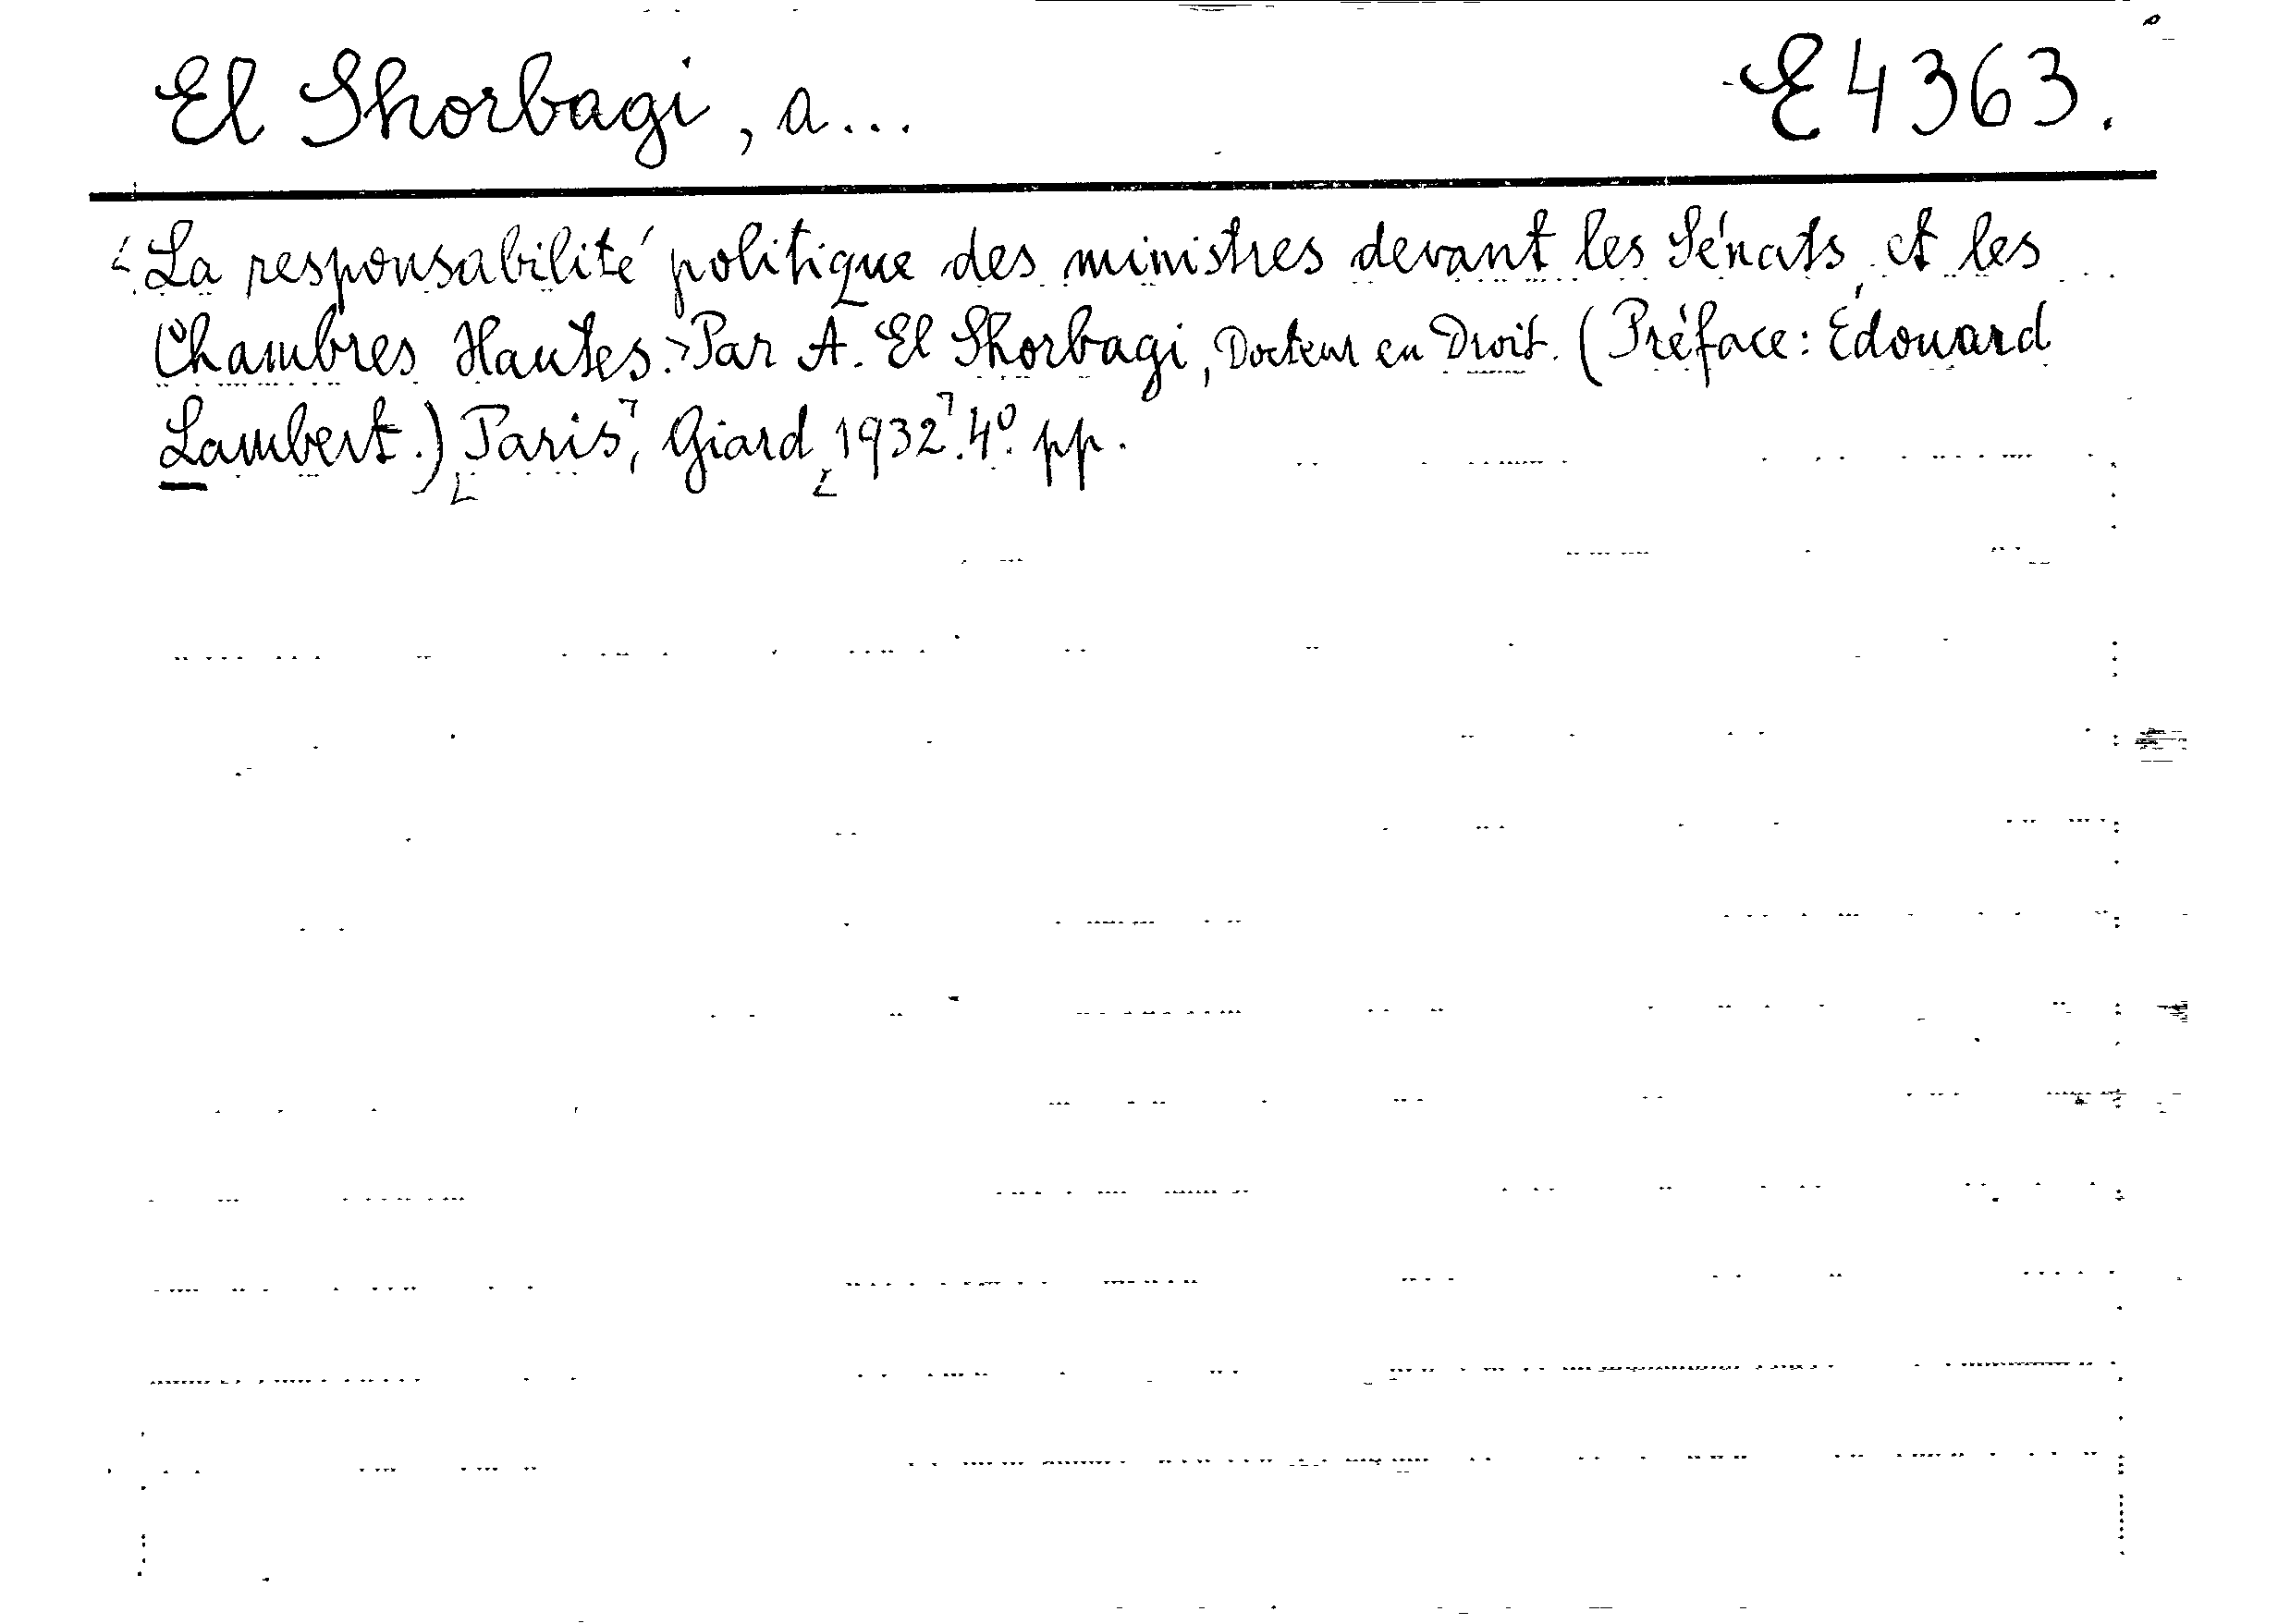 El Shorbagi, A...
E 4363.
<La responsabilité politique des ministres devant les Sénats et les
Chambres Hautes.> Par A. El Shorbagi, Docteur en Droit. (Préface: Édouard
Lambert.) Paris, Giard 1932. 4º. pp.